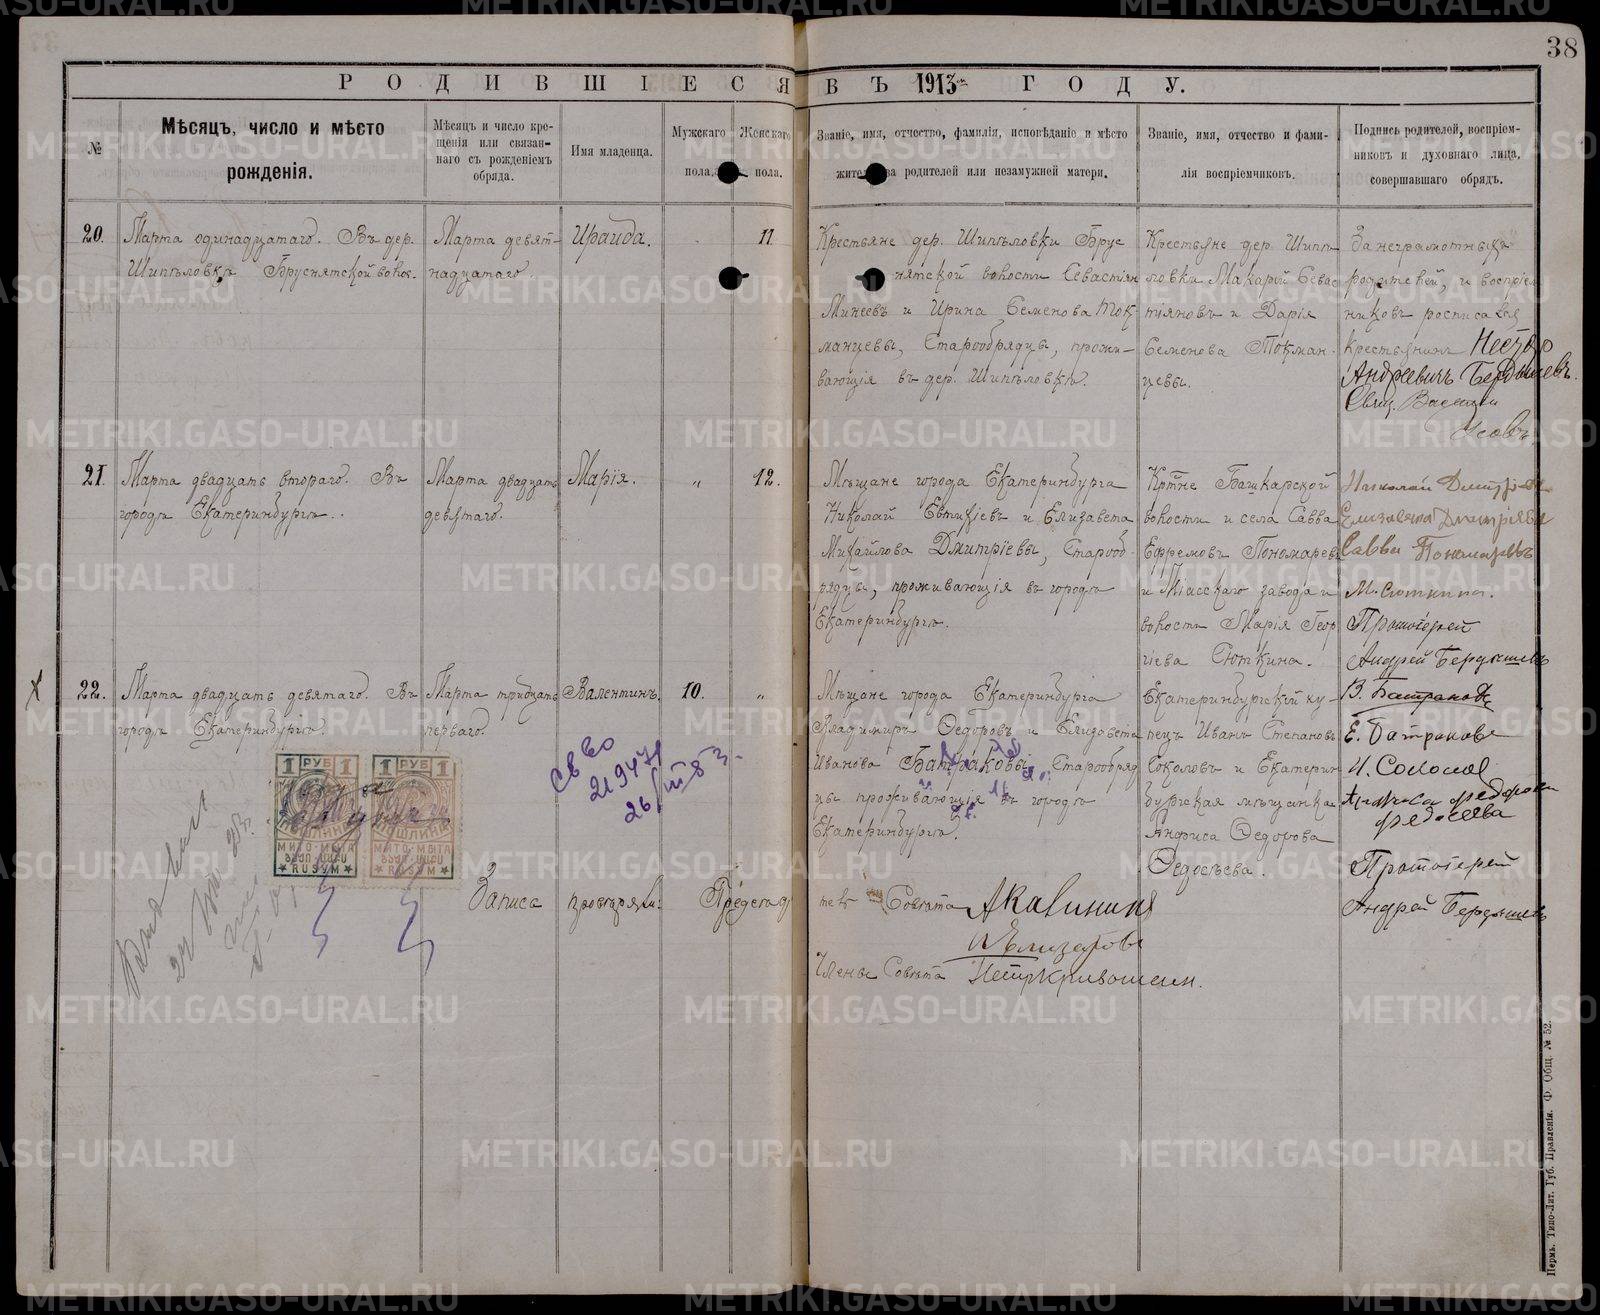 38
РОДИВШІЕСЯ ВЪ 1913 ГОДУ.
№
Мѣсяцъ, число и мѣсто
рожденія.
Мѣсяцъ и число кре-
щенія или связан-
наго съ рожденіемъ
обряда.
Имя младенца.
Мужскаго
пола.
Женскаго
пола.
Званіе, имя, отчество, фамилія, исповѣданіе и мѣсто
родителей или незамужней матери.
Званіе, имя, отчество и фами-
лія воспріемниковъ.
Подпись родителей, воспріем-
никовъ и духовнаго лица,
совершавшаго обрядъ.
20.
Марта одинадцатаго. Въ дер.
Шипѣловкѣ Бруснятской волос.
Марта девят-
надцатаго.
Ираида.
11
Крестьяне дер. Шипѣловки Брус
нятской волости Севастіян
Минеевъ и Ирина Семенова Ток
манцевы, Старообрядцы, прожи-
вающія въ дер. Шипѣловкѣ.
Крестьяне дер. Шипѣ
ловки Макарій Севас
тіяновъ и Дарія
Семенова Токман-
цевы.
За неграмотныхъ
родителей, и воспріем
никовъ росписался
крестьянинъ Несторъ
Андреевичъ Бердышевъ.
Свящ. Василій
21.
Марта двадцать втораго. Въ
городѣ Екатеринбургѣ.
Марта двадцать
девятаго.
Марія.
„
12.
Мѣщане города Екатеринбурга
Николай Евтихіевъ и Елизавета
Михайлова Дмитріевы, Старооб-
рядцы, проживающія въ городѣ
Екатеринбургѣ.
Кртне Башкарской
волости и села Савва
Ефремовъ Пономарев
и Міасскаго завода и
волости Марія Геор
гіева Сюткина.
Николай Дмитріев
Елизавета Дмитріева
Савва Пономаревъ
М. Сюткина.
Протоіерей
Андрей Бердышевъ
22.
Марта двадцать девятаго. Въ
городѣ Екатеринбургѣ.
Марта тридцать
перваго.
Валентинъ.
10.
„
Мѣщане города Екатеринбурга
Владимиръ Ѳедоровъ и Елизавета
Иванова Батраковы, Старообряд
цы проживающія въ городѣ
Екатеринбургѣ.
Екатеринбургскій ку-
пецъ Иванъ Степановъ
Соколовъ и Екатерин
бургская мѣщанка
Анфиса Ѳедорова
Ѳедосѣева.
В. Батраковъ
Е. Батракова
И. Соколов
федосеева
Протоіерей
Андрей Бердышевъ
219471
1 РУБ 1
1 РУБ 1
RUSУM
RUSУM
Запись провѣряли: Предсѣда
тель Совѣта А Калининъ
Елизаров
Члены Совѣта Петръ Кривошеин.
Пермь. Типо-Лит. Губ. Правленія. Ф. Общ. № 52.
METRIKI.GASO-URAL.RU